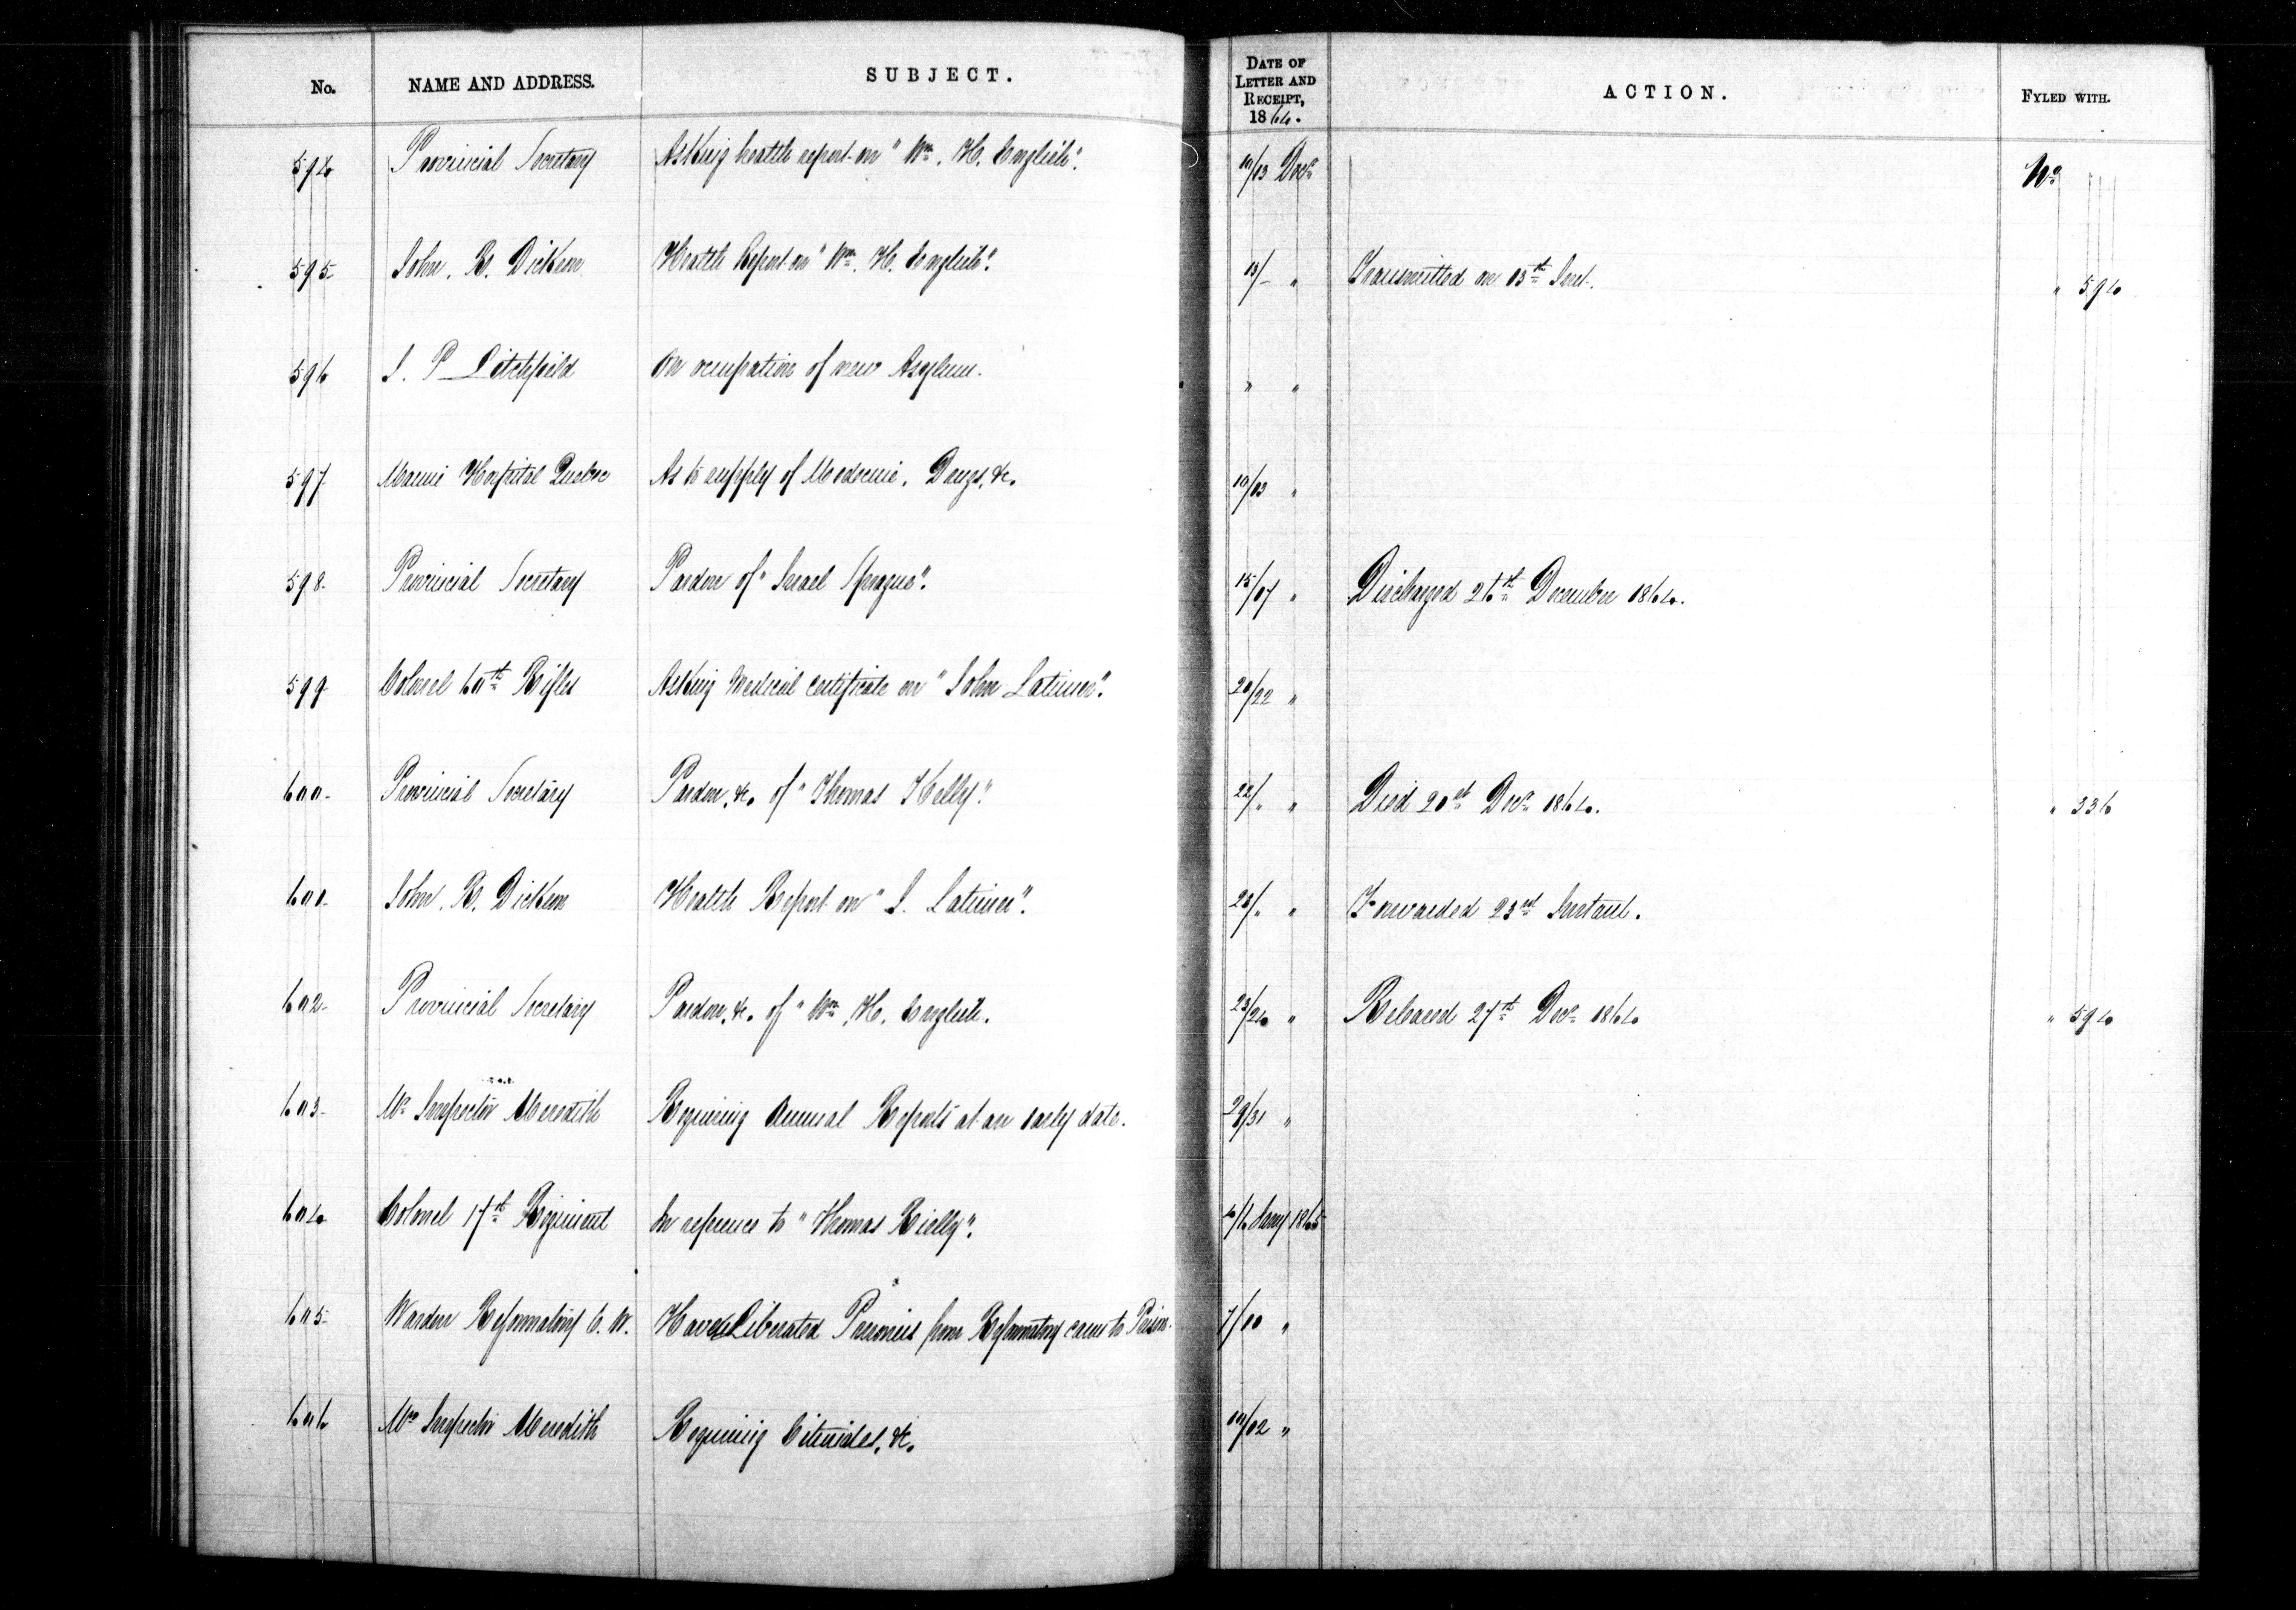 No. NAME AND ADDRESS. SUBJECT. DATE OF LETTER AND RECEIPT, 1864. ACTION. FYLED WITH.
594 Provincial Secretary Asking health report on "Wm. H. English". 10/13 Decr No
595 John. R. Dickson Health Report on "Wm. H. English". 13/– " Transmitted on 13th Inst. " 594
596 J. P Litchfield On occupation of new Asylum. " "
597 Marine Hospital Quebec As to supply of Medecine, Drugs, &c. 10/13 "
598 Provincial Secretary Pardon of "Israel Sprague". 15/17 " Discharged 26th December 1864.
599 Colonel 60th Rifles Asking Medical certificate on "John Latimer". 20/22 "
600 Provincial Secretary Pardon, &c. of "Thomas Kelly". 22/" " Died 20th Decr 1864. " 336
601 John. R. Dickson Health Report on "J. Latimer". 23/" " Forwarded 23rd Instant.
602 Provincial Secretary Pardon, &c. of "Wm. H. English. 23/24 " Released 27th Decr 1864 " 594
603 Mr Inspector Meredith Requiring Annual Reports at an early date. 29/31 "
604 Colonel 17th Regiment In reference to "Thomas Rielly". 4/6 Jany 1865
605 Warden Reformatory C. W. Have Liberated Prisoners from Reformatory came to Prison. 7/10 "
606 Mr Inspector Meredith Requiring Estimates, &c. 10/12 "